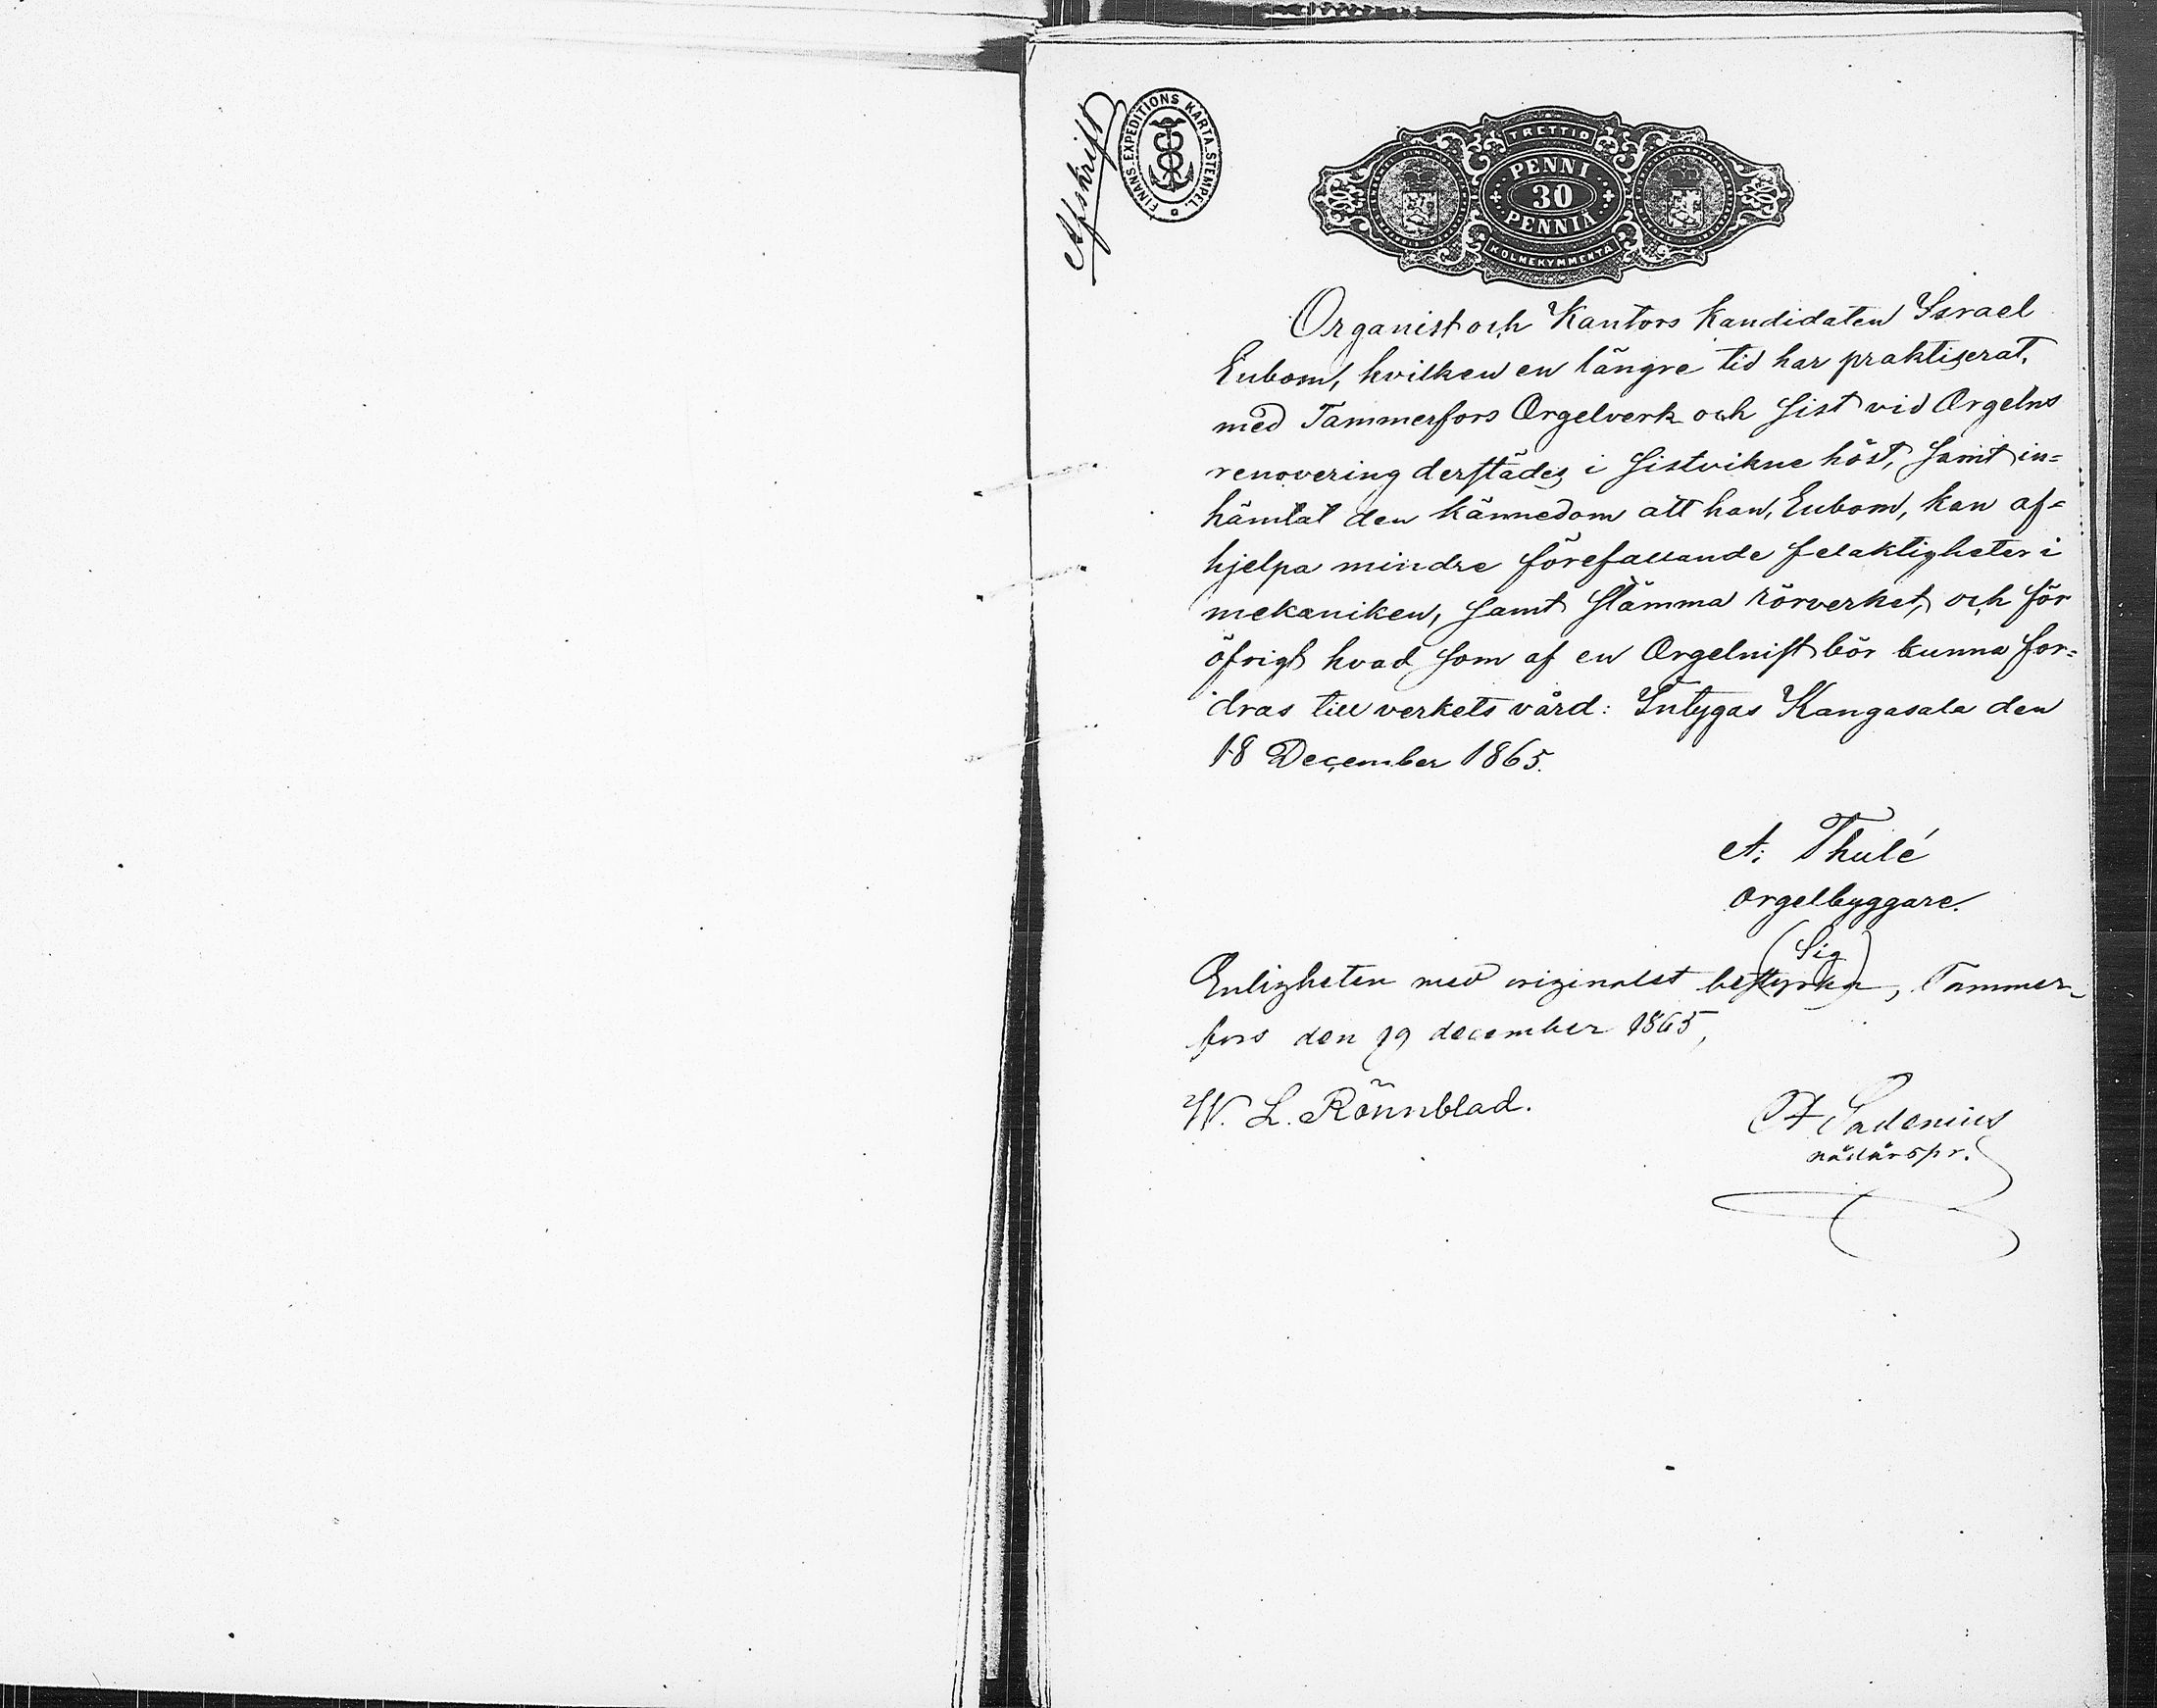 Afskrift
FINANS-EXPEDITIONS KARTA-STEMPEL.
TRETTIO
PENNI
30
PENNIÄ
KOLMEKYMMENTÄ
Organist och Kantors Kandidaten Israel
Eubom, hvilken en längre tid har praktiserat,
med Tammerfors Orgelverk och sist vid Orgelns
renovering derstädes i sistvikne höst, samt in=
hämtat den kännedom att han, Eubom, kan af=
hjelpa mindre förefallande felaktigheter i
mekaniken, samt stämma rörverket, och för
öfrigt hvad som af en Orgelnist bör kunna for=
dras till verkets vård: Intygas Kangasala den
18 December 1865.
A: Thulé
Orgelbyggare.
(Sig)
Enligheten med originalet bestyrka, Tammer-
fors den 19 december 1865,
W. L. Rönnblad.
nådårspr.